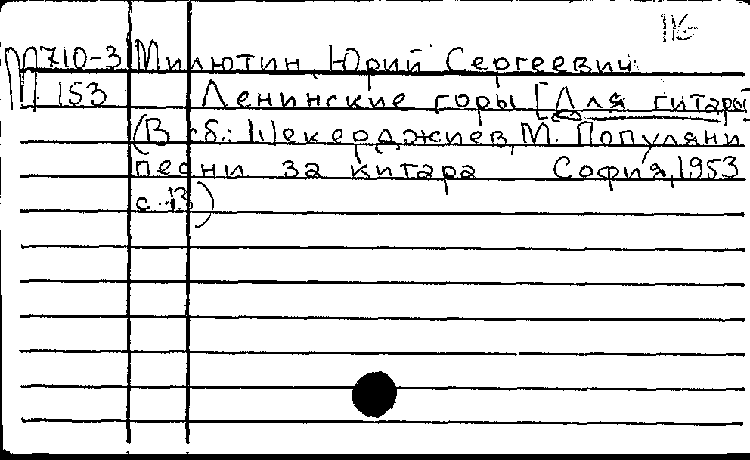 116
М710-3 Милютин, Юрий Сергеевич
153 Ленинские горы [Для гитары]
(В сб.: Шекерджиев, М. Популяни
песни за китара София, 1953
с. 13)